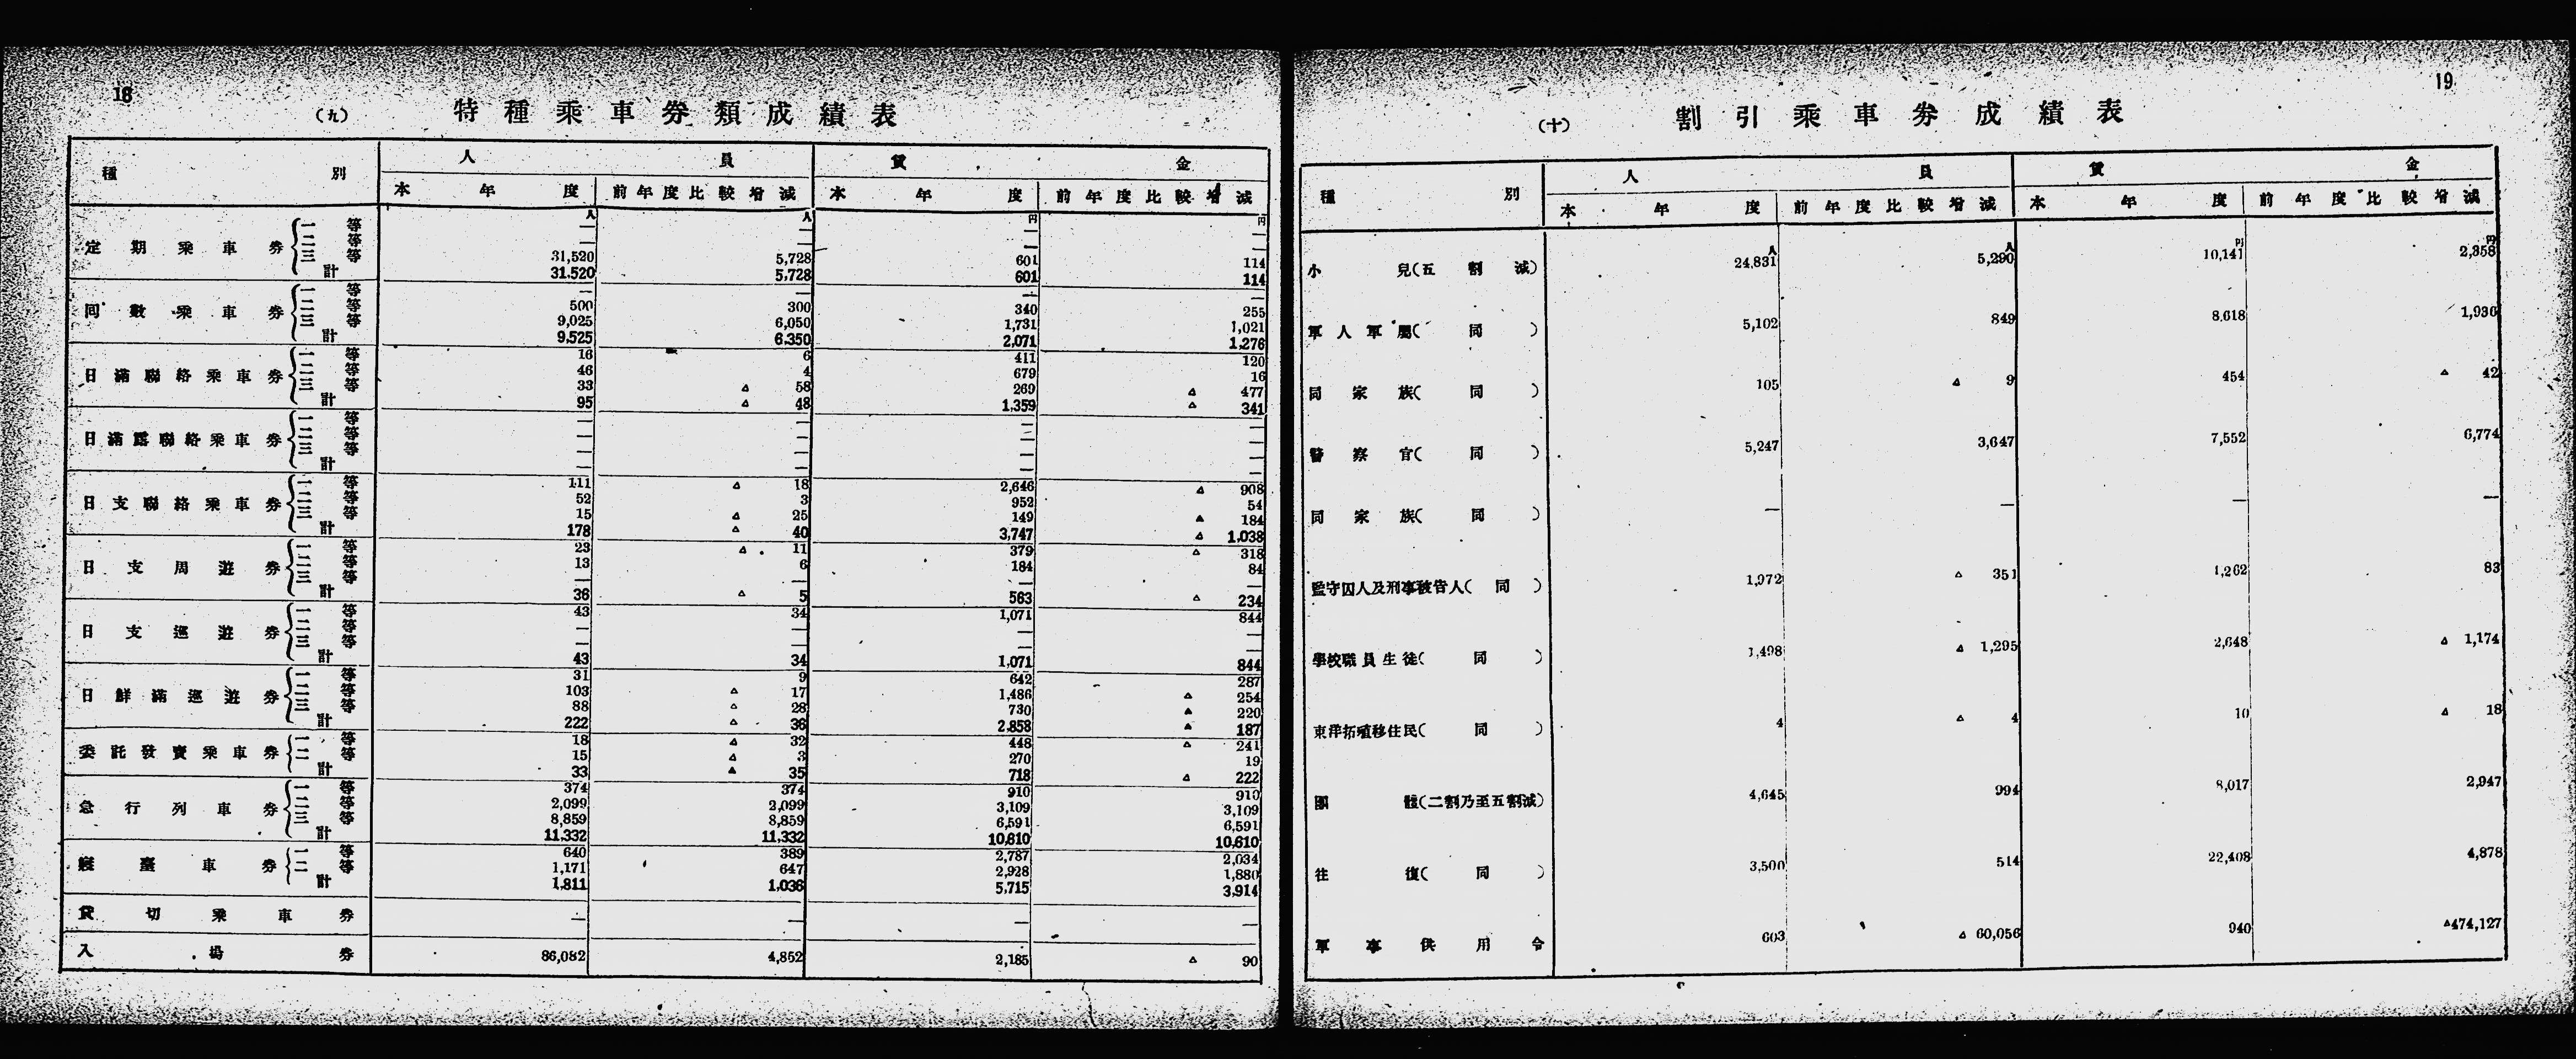 18
(九) 特種乘車劵類成績表
種別 人員 賃金
本年度 前年度比較增減 本年度 前年度比較增減
人 人 円 円
定期乘車劵 一等 — — — —
二等 — — — —
三等 31,520 5,728 601 114
計 31,520 5,728 601 114
回數乘車劵 一等 — — — —
二等 500 300 340 255
三等 9,025 6,050 1,731 1,021
計 9,525 6,350 2,071 1,276
日滿聯絡乘車劵 一等 16 6 411 120
二等 46 4 679 16
三等 33 △ 58 269 △ 477
計 95 △ 48 1,359 △ 341
日滿露聯絡乘車劵 一等 — — — —
二等 — — — —
三等 — — — —
計 — — — —
日支聯絡乘車劵 一等 111 △ 18 2,646 △ 908
二等 52 3 952 54
三等 15 △ 25 149 △ 184
計 178 △ 40 3,747 △ 1,038
日支周遊劵 一等 23 △ 11 379 △ 318
二等 13 6 184 84
三等 — — — —
計 36 △ 5 563 △ 234
日支巡遊劵 一等 43 34 1,071 844
二等 — — — —
三等 — — — —
計 43 34 1,071 844
日鮮滿巡遊劵 一等 31 9 642 287
二等 103 △ 17 1,486 △ 254
三等 88 △ 28 730 △ 220
計 222 △ 36 2,858 △ 187
委託發賣乘車劵 一等 18 △ 32 448 △ 241
二等 15 △ 3 270 19
計 33 △ 35 718 △ 222
急行列車劵 一等 374 374 910 910
二等 2,099 2,099 3,109 3,109
三等 8,859 8,859 6,591 6,591
計 11,332 11,332 10,610 10,610
寢臺車劵 一等 640 389 2,787 2,034
二等 1,171 647 2,928 1,880
計 1,811 1,036 5,715 3,914
貸切乘車劵 — — — —
入場劵 86,082 4,852 2,185 △ 90
19
(十) 割引乘車劵成績表
種別 人員 賃金
本年度 前年度比較增減 本年度 前年度比較增減
人 人 円 円
小兒(五割減) 24,831 5,290 10,141 2,358
軍人軍屬(同) 5,102 849 8,618 1,936
同家族(同) 105 △ 9 454 △ 42
警察官(同) 5,247 3,647 7,552 6,774
同家族(同) — — — —
監守囚人及刑事被吿人(同) 1,972 △ 351 1,262 83
學校職員生徒(同) 1,498 △ 1,295 2,648 △ 1,174
東洋拓殖移住民(同) 4 △ 4 10 △ 18
團體(二割乃至五割減) 4,645 994 8,017 2,947
往復(同) 3,500 514 22,408 4,878
軍事供用令 603 △ 60,056 940 △474,127